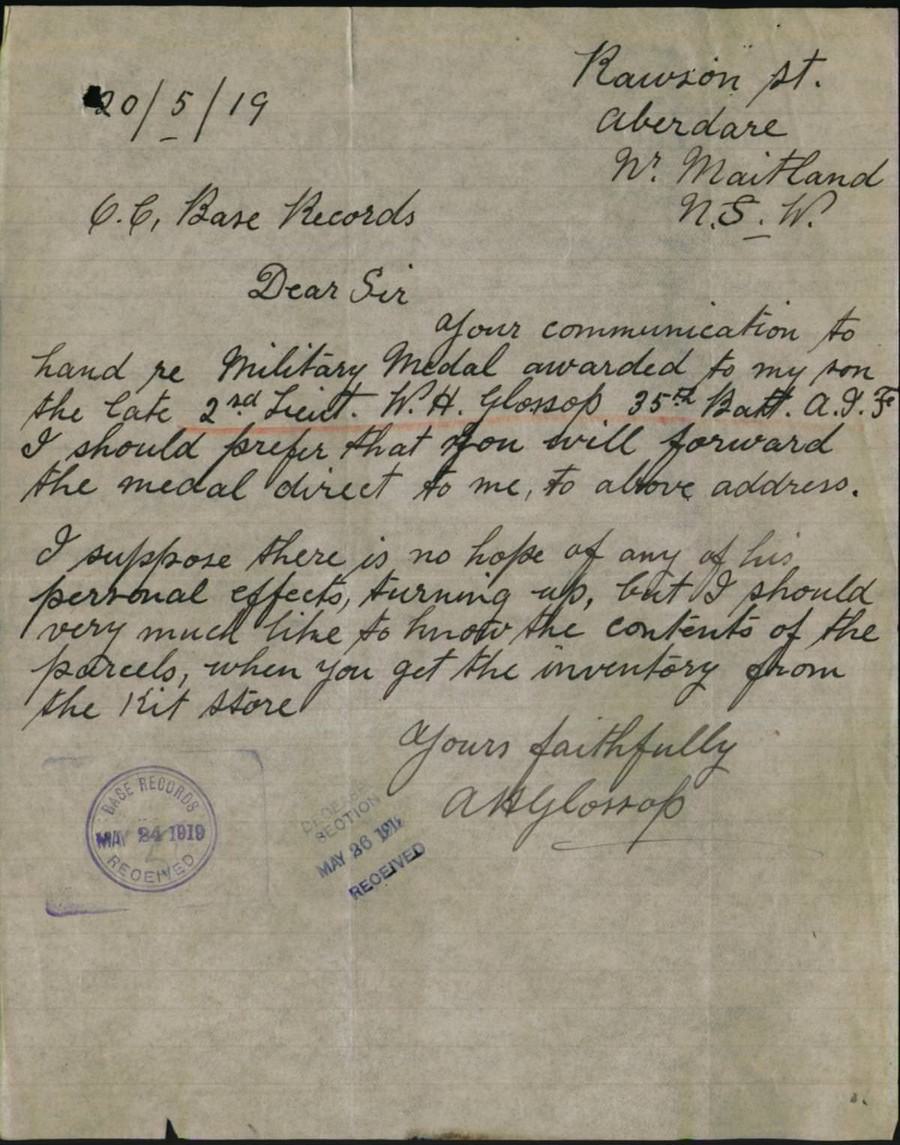 20/5/19
Rawson St.
Aberdare
Nr. Maitland
N.S.W.
O.C, Base Records
Dear Sir
Your communication to
hand re Military Medal awarded to my son
the late 2nd Lieut. W.H. Glossop 35th Batt. A.I.F
I should prefer that you will forward
the medal direct to me, to above address.
I suppose there is no hope of any of his
personal effects, turning up, but I should
very much like to know the contents of the
parcels, when you get the inventory from
the Kit store
Yours faithfully
AHGlossop
BASE RECORDS
MAY 24 1919
RECEIVED
SECTION
MAY 26 1919
RECEIVED